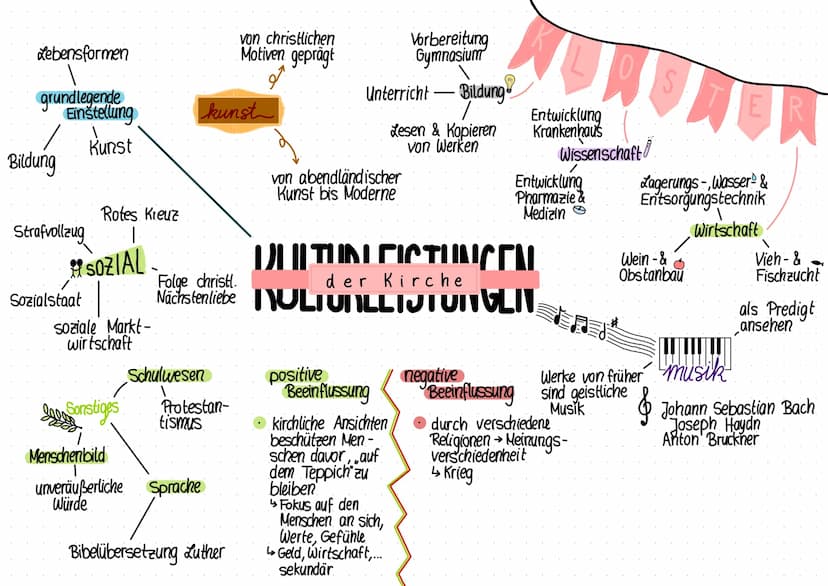 Lebensformen
grundlegende
Einstellung
Bildung
Kunst
kunst
von christlichen
Motiven geprägt
von abendländischer
Kunst bis Moderne
KLOSTER
Vorbereitung
Gymnasium
Unterricht
Bildung
Lesen & Kopieren
von Werken
Entwicklung
Krankenhaus
Wissenschaft
Entwicklung
Pharmazie &
Medizin
Lagerungs-, Wasser- &
Entsorgungstechnik
Wirtschaft
Wein- &
Obstanbau
Vieh- &
Fischzucht
Rotes Kreuz
Strafvollzug
SOZIAL
Sozialstaat
Folge christl.
Nächstenliebe
soziale Markt-
wirtschaft
KULTURLEISTUNGEN
der Kirche
als Predigt
ansehen
musik
Werke von früher
sind geistliche
Musik
Johann Sebastian Bach
Joseph Haydn
Anton Bruckner
Schulwesen
Sonstiges
Protestan-
tismus
Menschenbild
unveräußerliche
Würde
Sprache
Bibelübersetzung Luther
positive
Beeinflussung
kirchliche Ansichten
beschützen Men-
schen davor, „auf
dem Teppich" zu
bleiben
↳ Fokus auf den
Menschen an sich,
Werte, Gefühle
↳ Geld, Wirtschaft,...
sekundär
negative
Beeinflussung
durch verschiedene
Religionen → Meinungs-
verschiedenheit
↳ Krieg